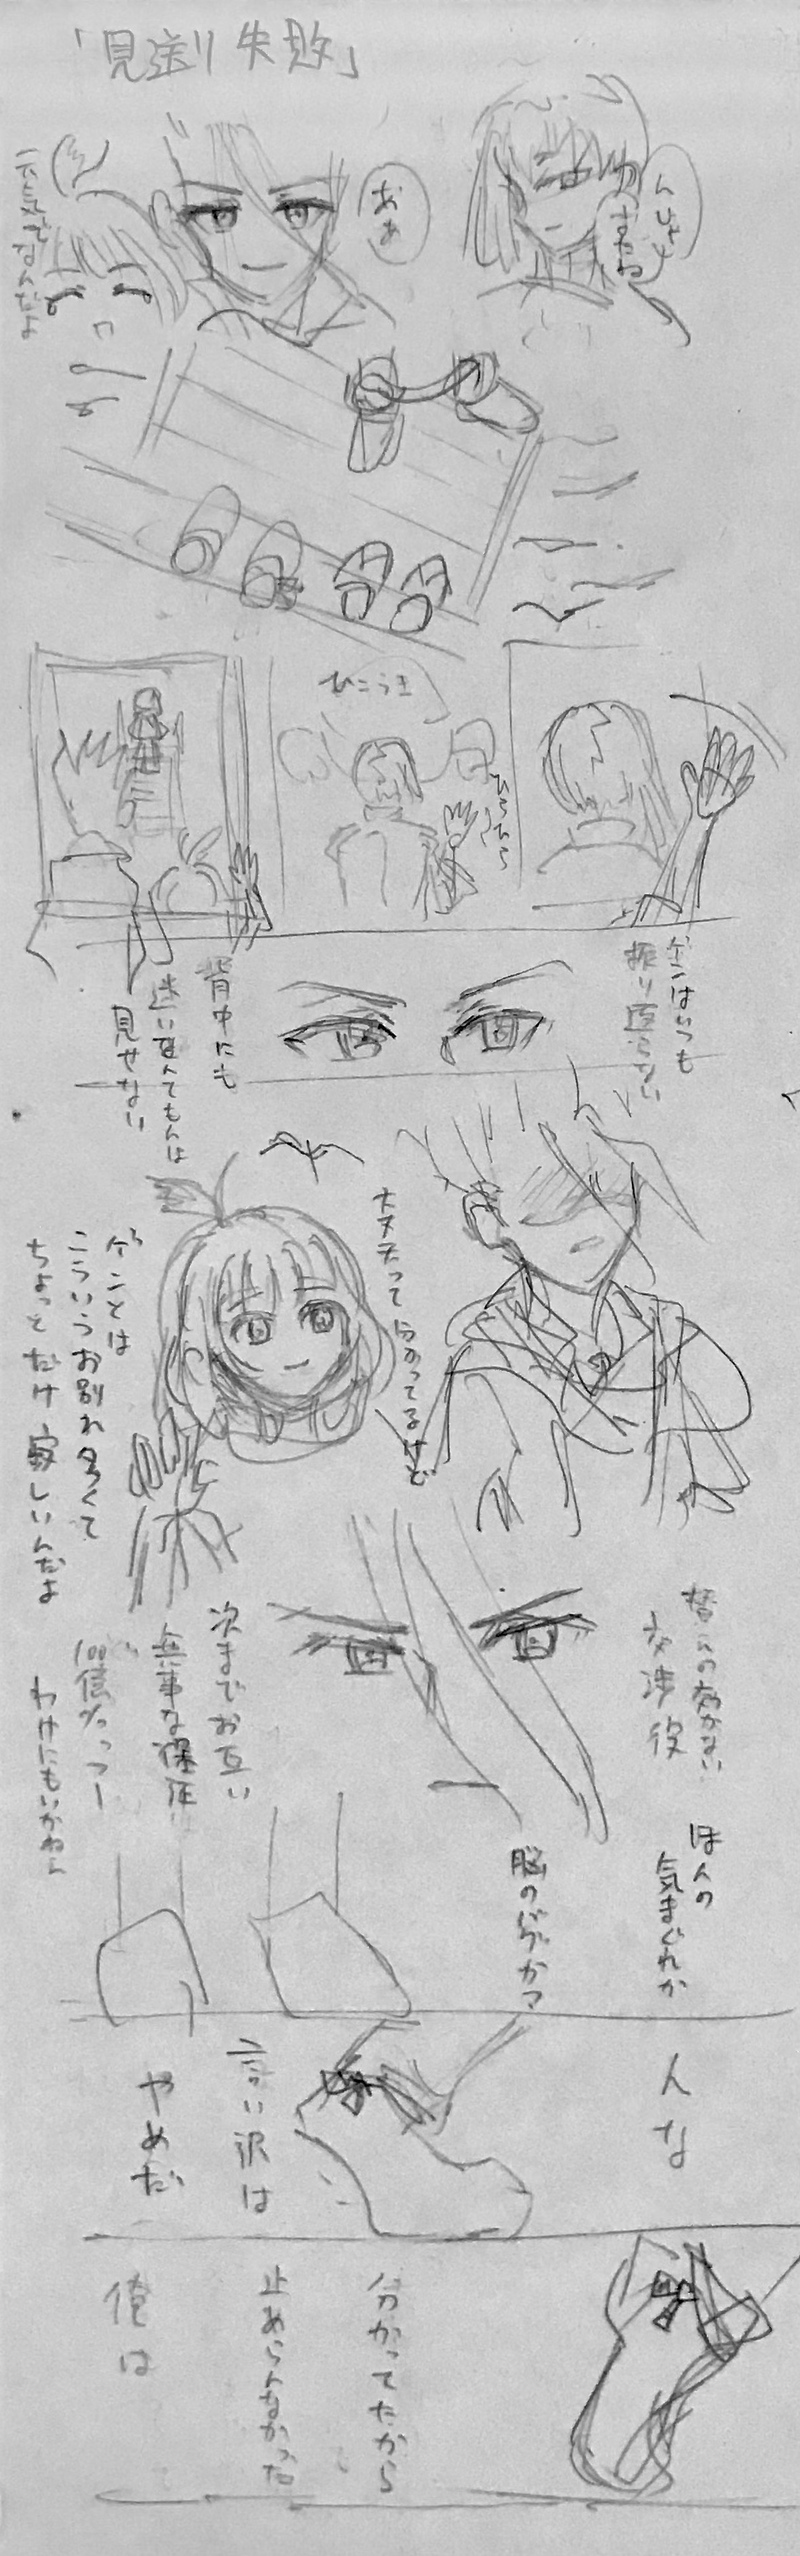 「見送り失敗」
んじゃ
おぉ
ひこうき
ひらひら
ゲンはいつも
振り返らない
背中にも
迷いなんてもんは
見せない
大丈夫って分かってるけど
ゲンとは
こういうお別れ多くて
ちょっとだけ寂しいんだよ
替えの効かない
交渉役
次までお互い
無事な保証
100億%つー
わけにもいかねえ
ほんの
気まぐれか
脳のバグかって
んな
言い訳は
やめだ
分かってたから
止めらんなかった
俺は